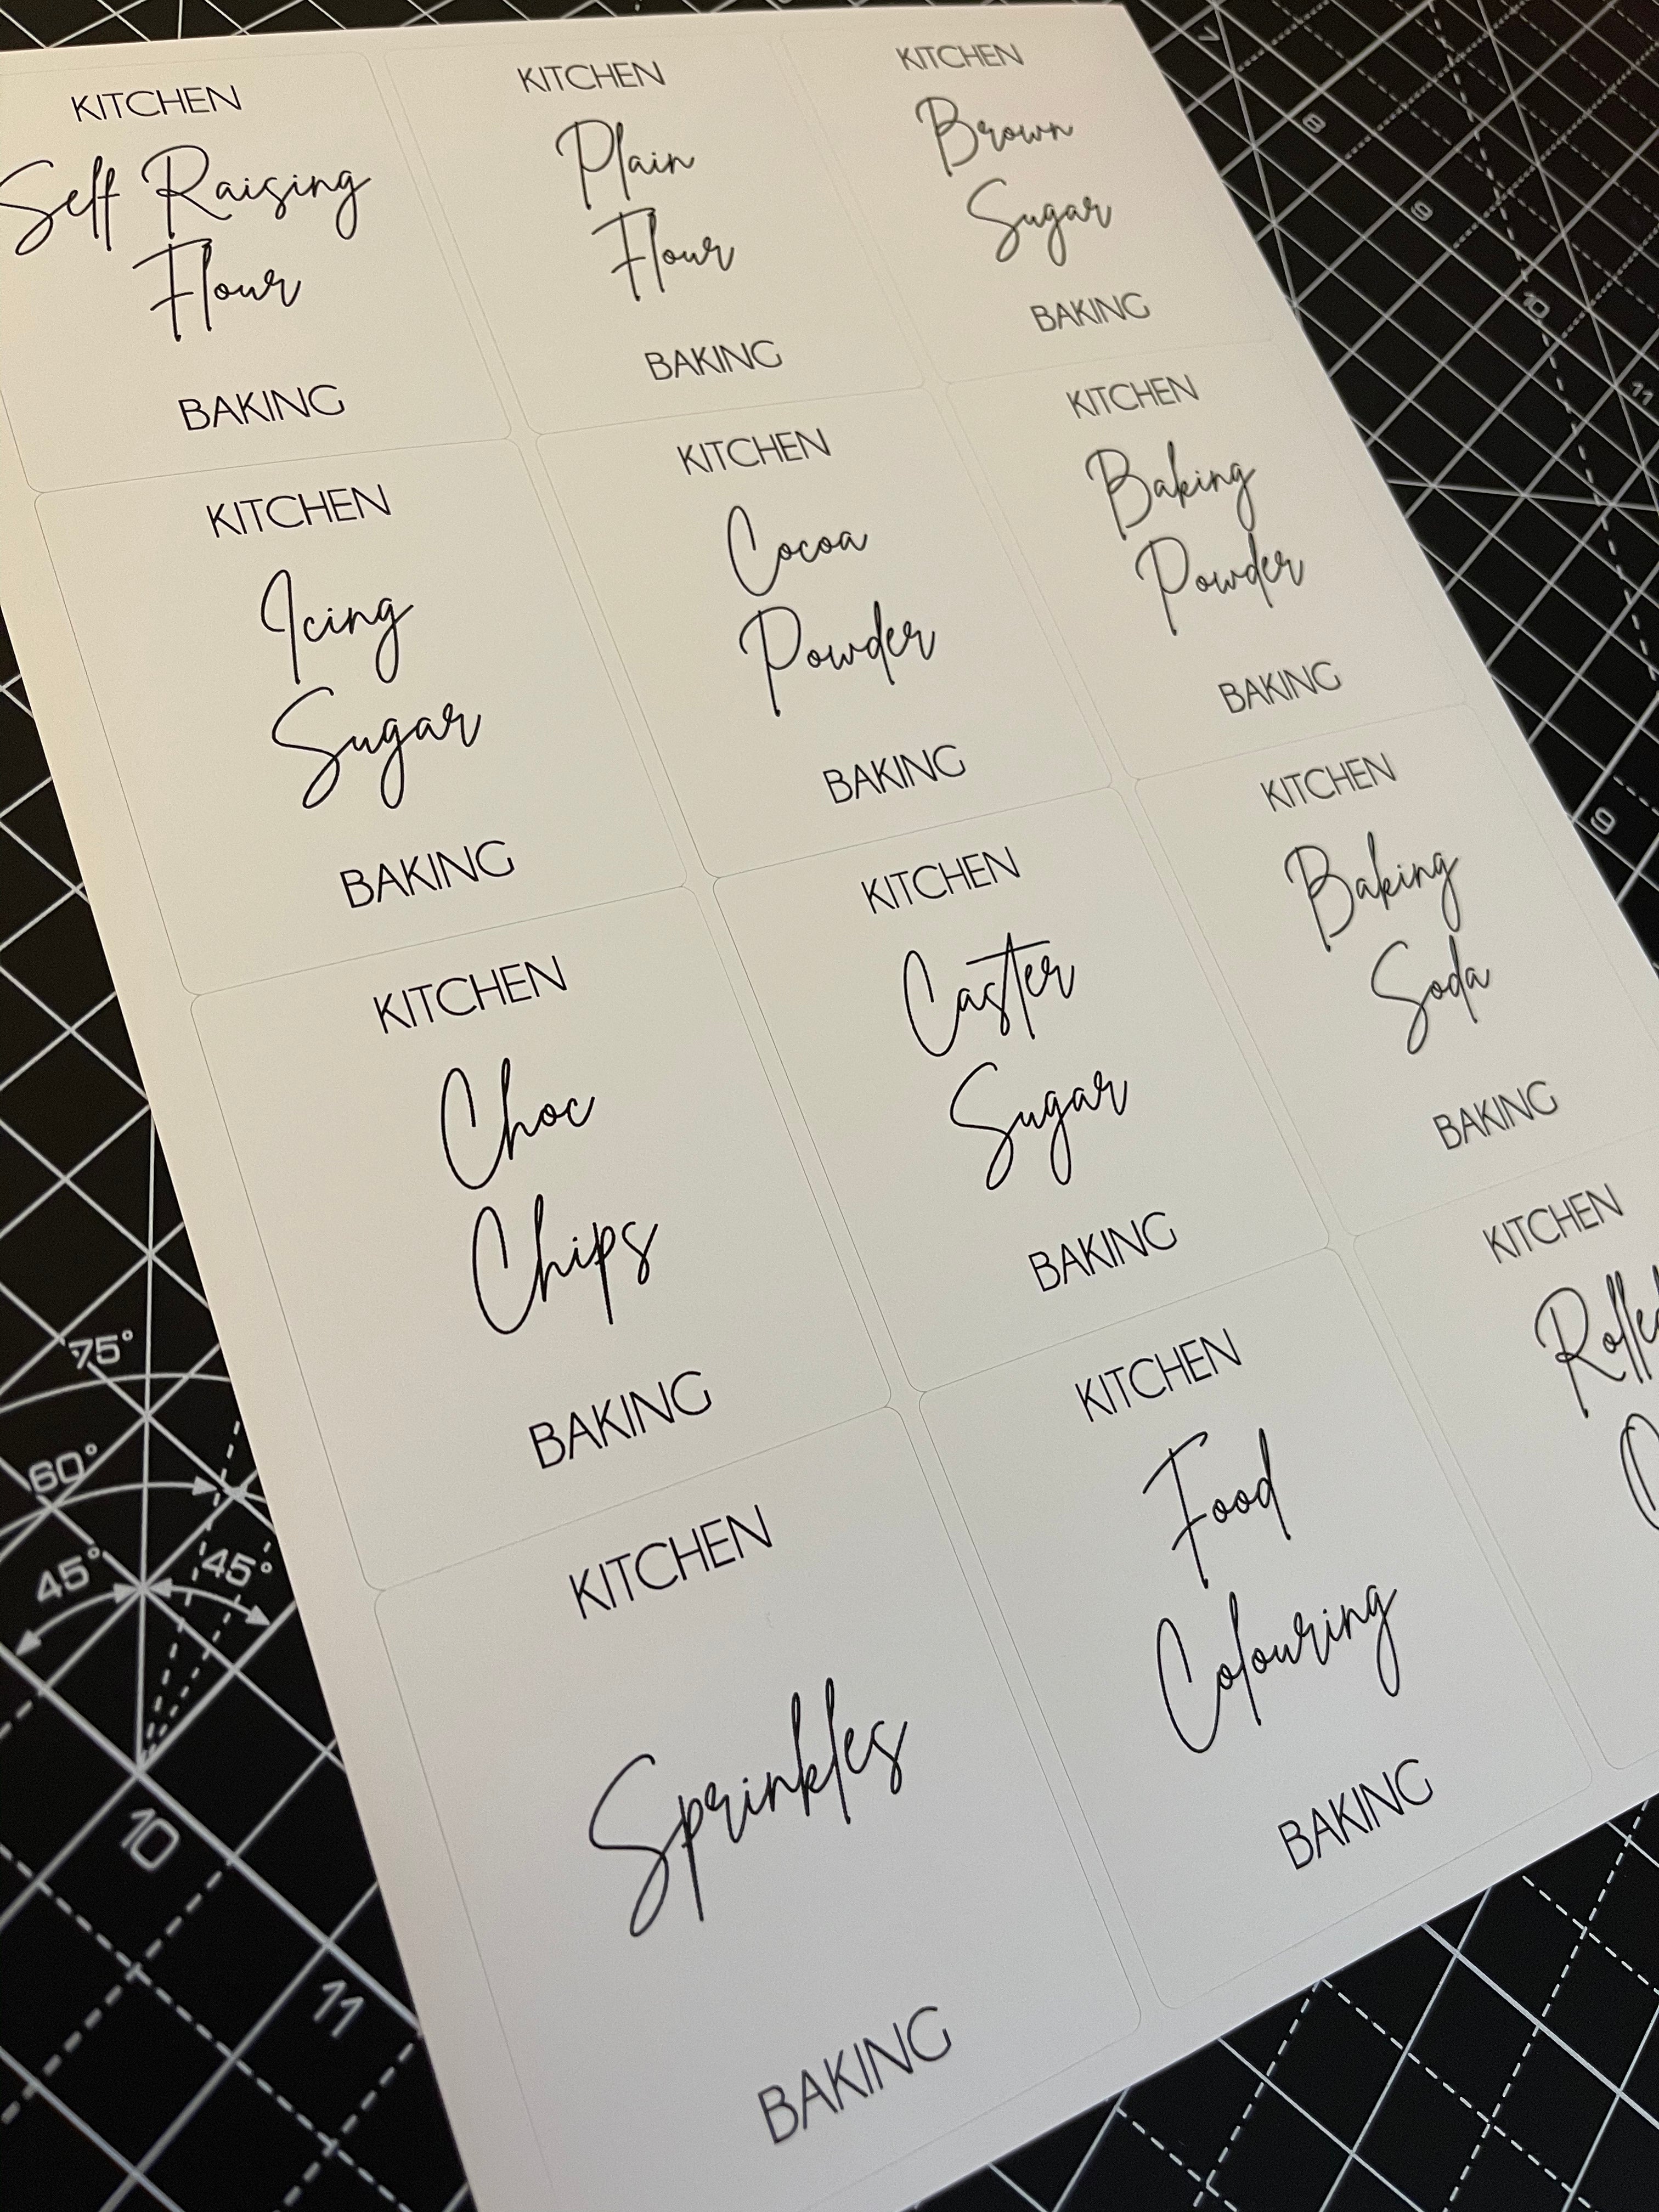 KITCHEN
Self Raising
Flour
BAKING
KITCHEN
Plain
Flour
BAKING
KITCHEN
Brown
Sugar
BAKING
KITCHEN
Icing
Sugar
BAKING
KITCHEN
Cocoa
Powder
BAKING
KITCHEN
Baking
Powder
BAKING
KITCHEN
Choc
Chips
BAKING
KITCHEN
Caster
Sugar
BAKING
KITCHEN
Baking
Soda
BAKING
KITCHEN
Sprinkles
BAKING
KITCHEN
Food
Colouring
BAKING
KITCHEN
7
8
9
10
11
9
75°
60°
45°
45°
10
11